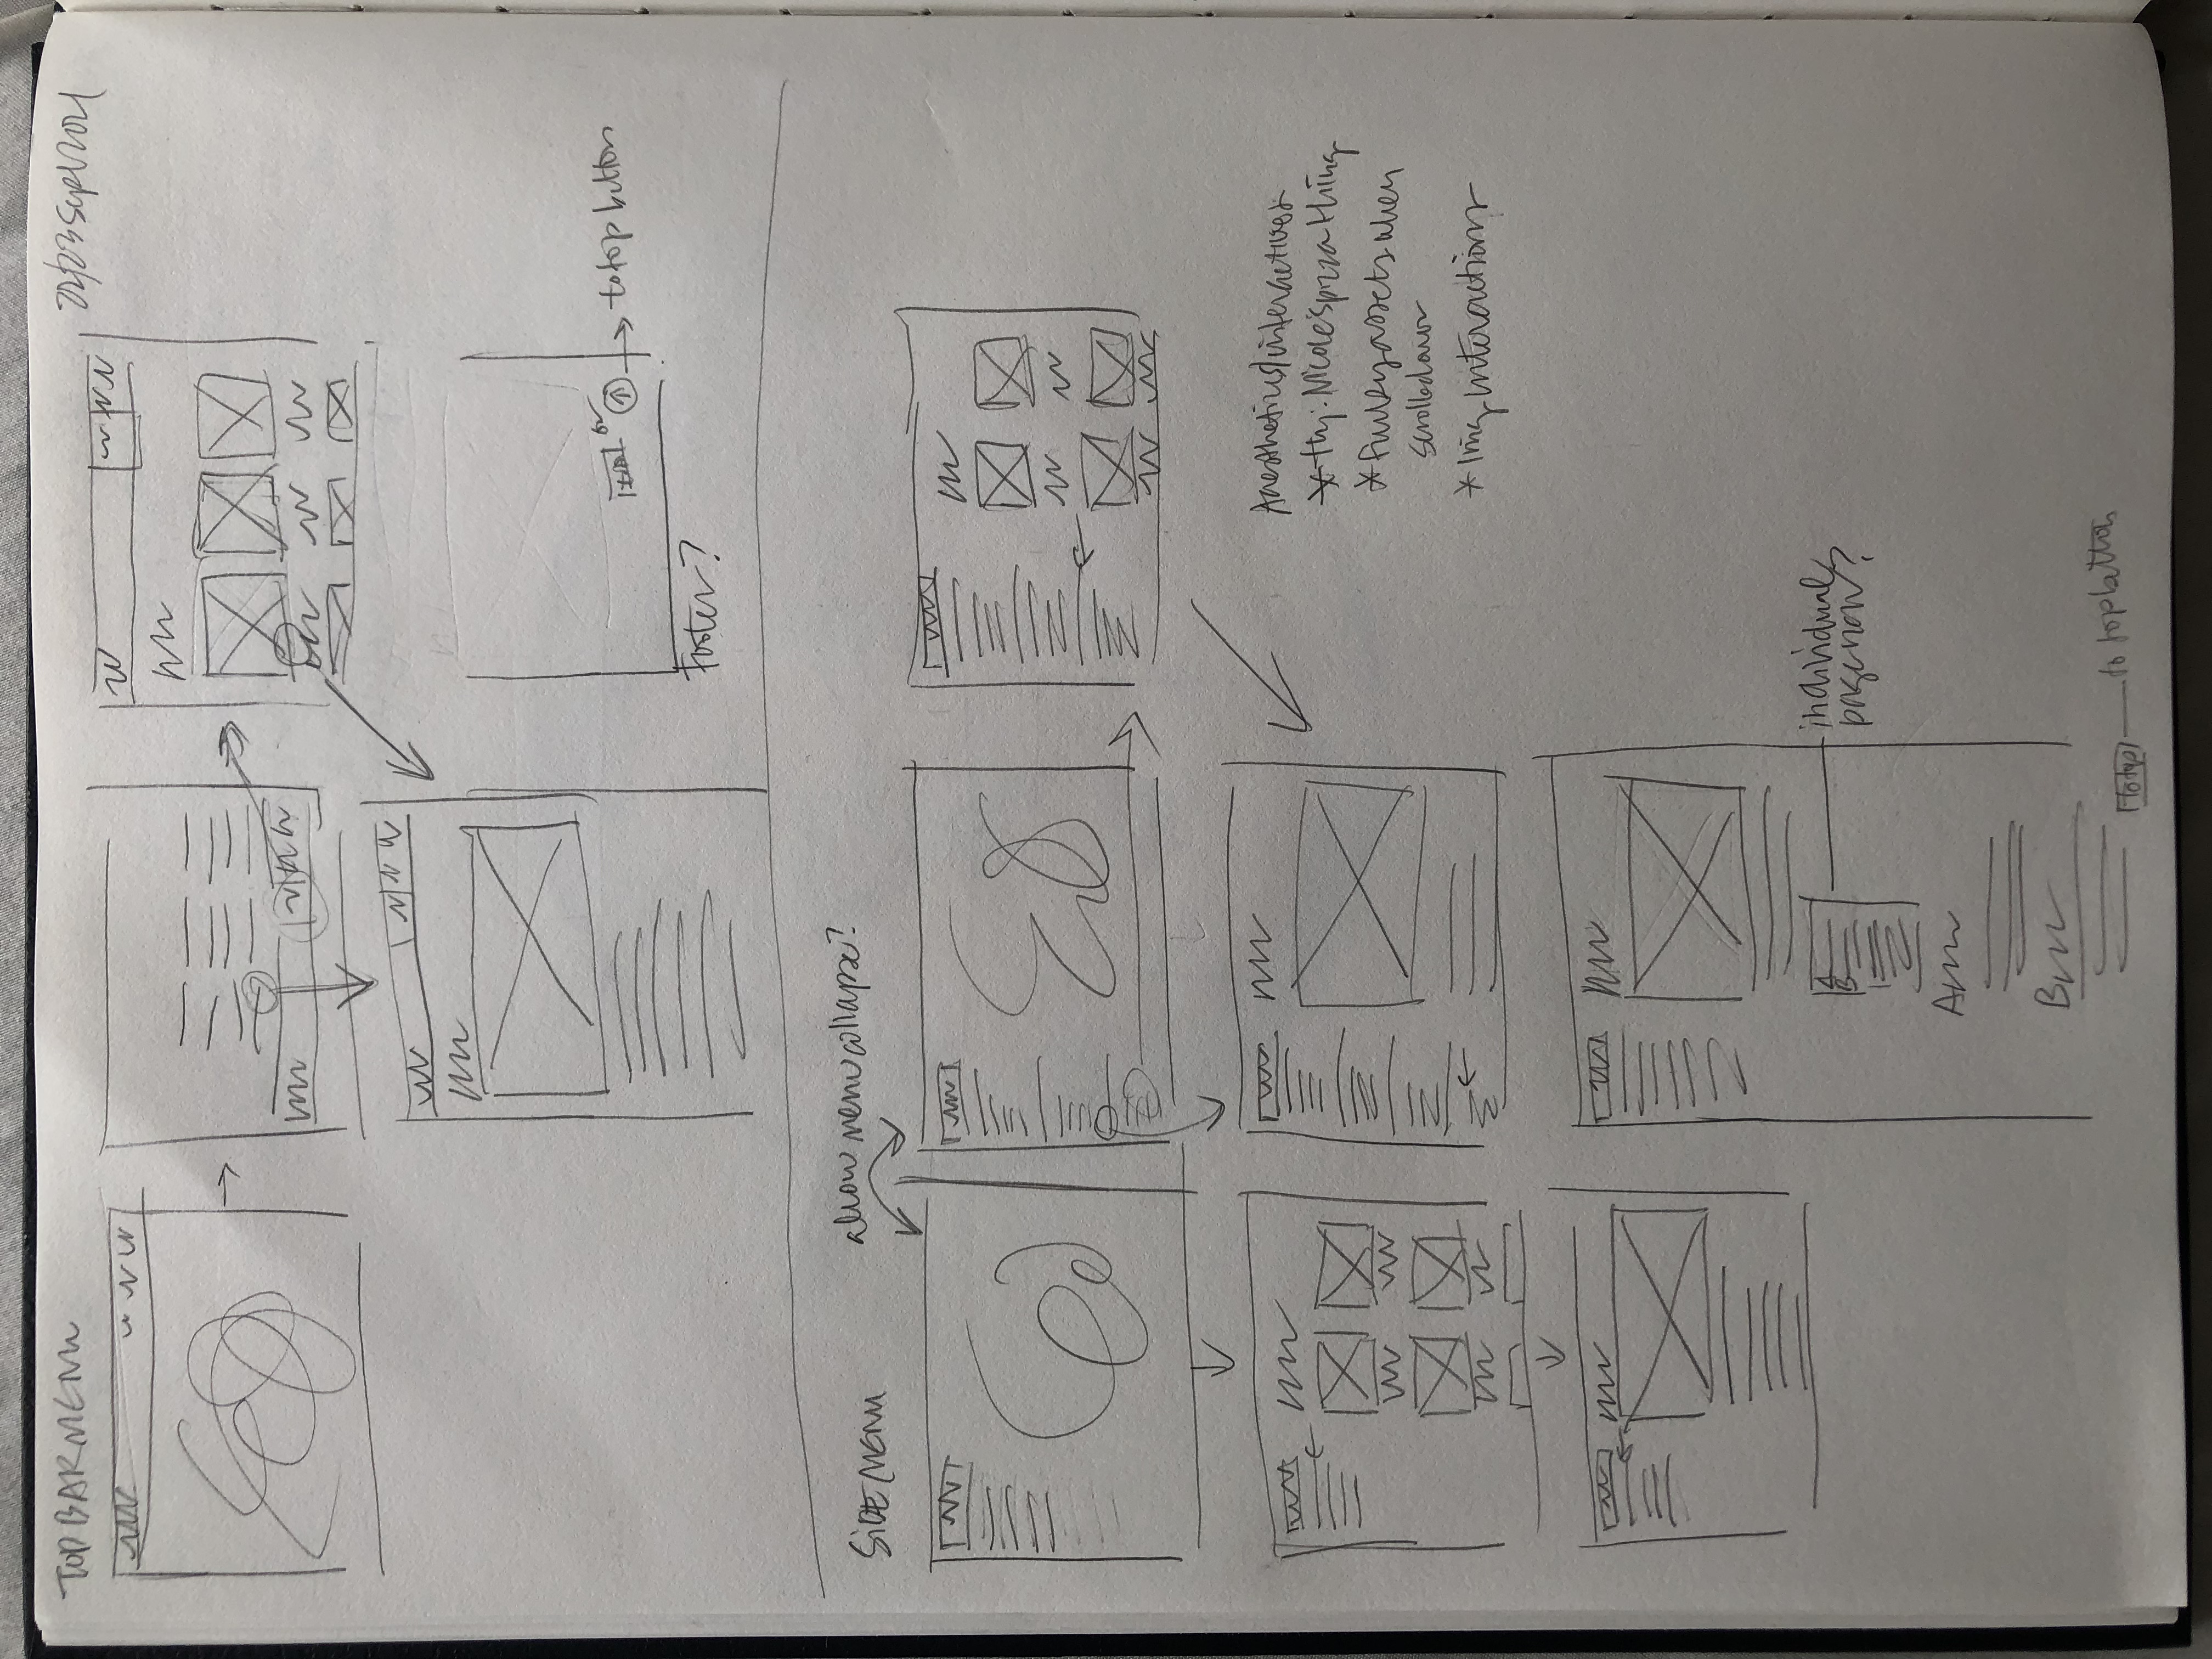 TOP BAR MENU
22/23 Sept 2021
or
to top button
Footer?
SIDE MENU
allow menu collapse?
Aaesthetics/interactives
* try: Nicole's pizza thing
* Funky assets when
scrolled over
* Img interactions
individual
page nav?
A
B
A
B
to top
to top button